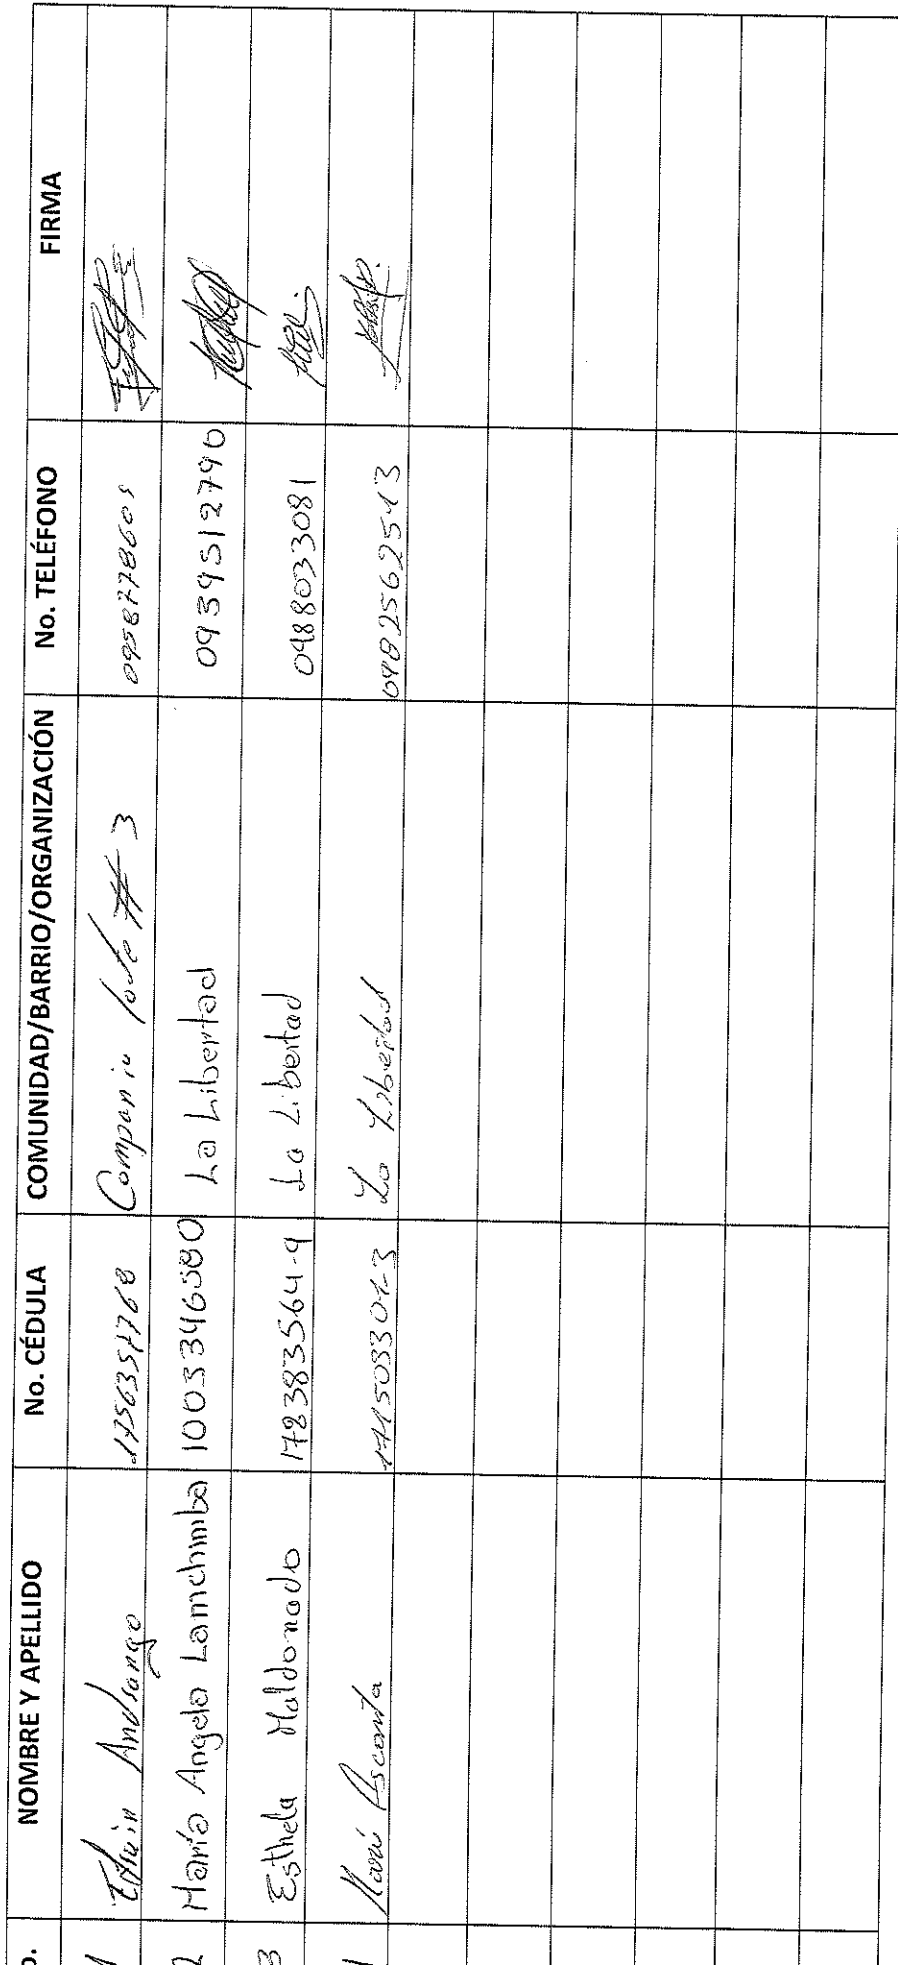 NOMBRE Y APELLIDO No. CÉDULA COMUNIDAD/BARRIO/ORGANIZACIÓN No. TELÉFONO FIRMA
1 Edwin Andrango Compania lote # 3
2 María Angela Lanchimba 1003346580 La Libertad 0939512790
3 Esthela Maldonado 172383564-9 La Libertad 0988033081
María Ascanta La Libertad